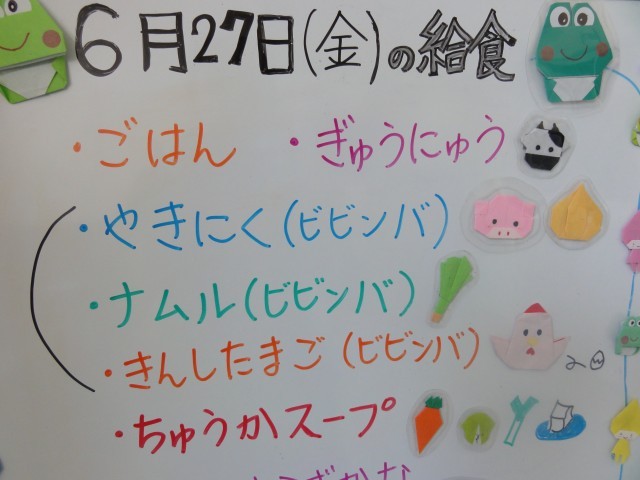 6月27日(金)の給食
・ごはん ・ぎゅうにゅう
・やきにく(ビビンバ)
・ナムル(ビビンバ)
・きんしたまご(ビビンバ)
・ちゅうかスープ